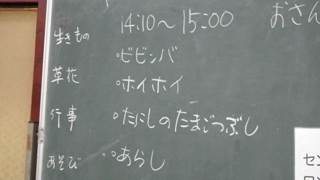 14:10～15:00
おさん
生きもの
・ビビンバ
草花
・ホイホイ
行事
・たにしのたまごつぶし
あそび
・あらし
セン